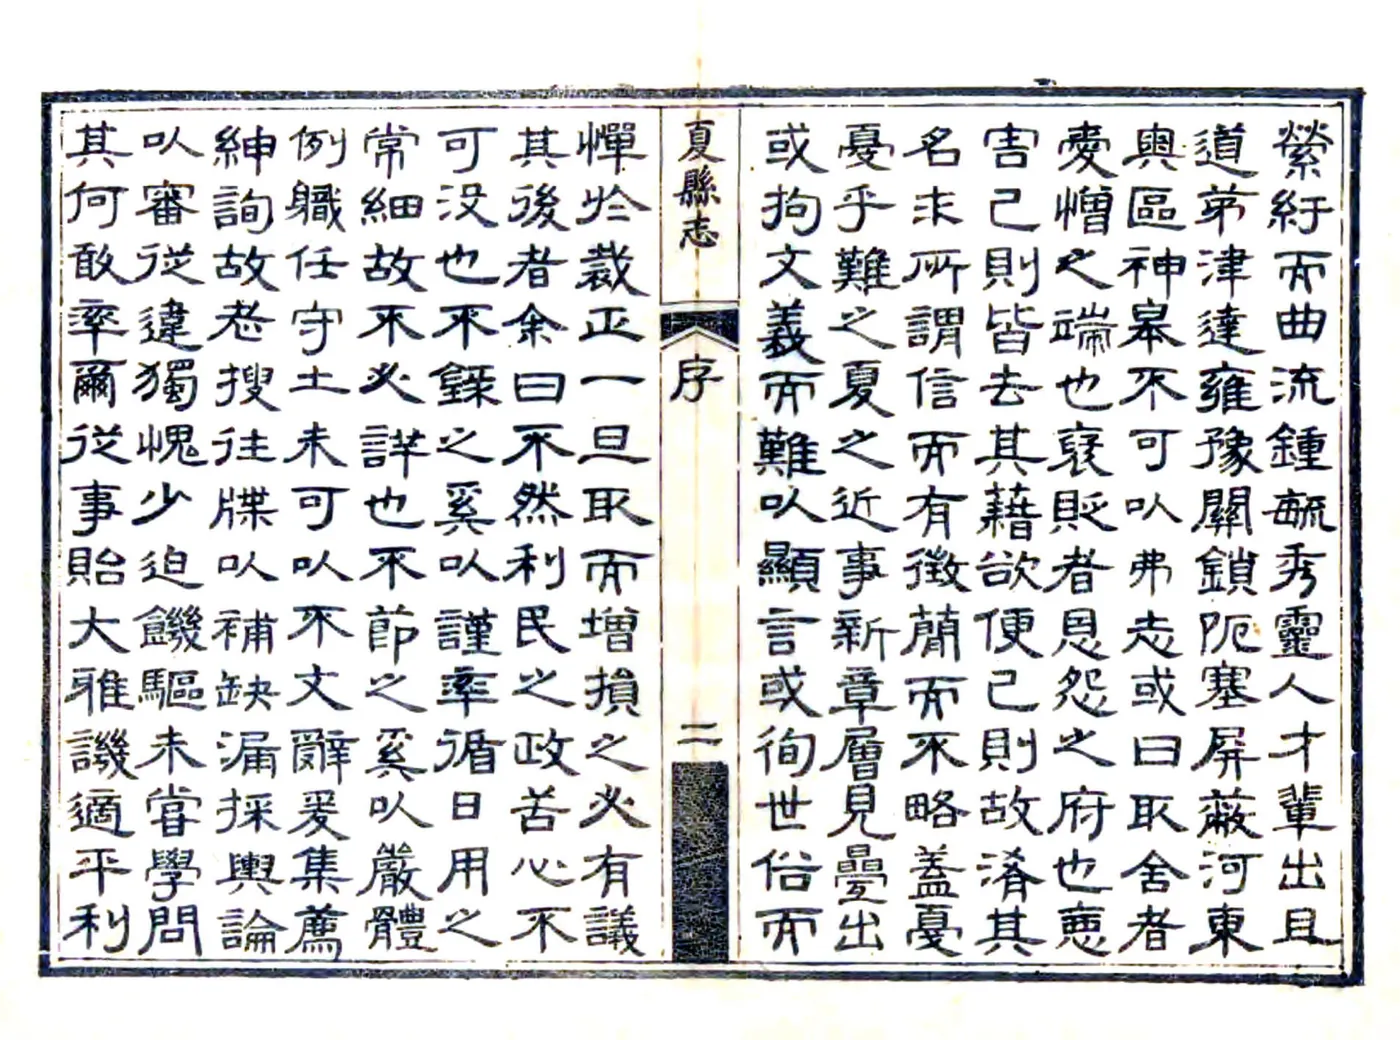 縈紆而曲流鍾毓秀靈人才輩出且
道苐津達雍豫關鎖阨塞屏蔽河東
奥區神皋不可以弗志或曰取舍者
愛憎之端也褒貶者恩怨之府也悪
害己則皆去其藉欲便己則故淆其
名求所謂信而有徴簡而不略蓋戞
戞乎難之夏之近事新章層見疊出
或拘文義而難以顯言或徇世俗而
夏縣志
序
二
憚扵裁正一旦取而增損之必有議
其後者余曰不然利民之政苦心不
可没也不錄之奚以謹率循日用之
常細故不必詳也不節之奚以嚴體
例職任守土未可以不文辭爰集薦
紳詢故老搜往牒以補缺漏採輿論
以審從違獨愧少迫饑驅未甞學問
其何敢率爾從事貽大雅譏適平利